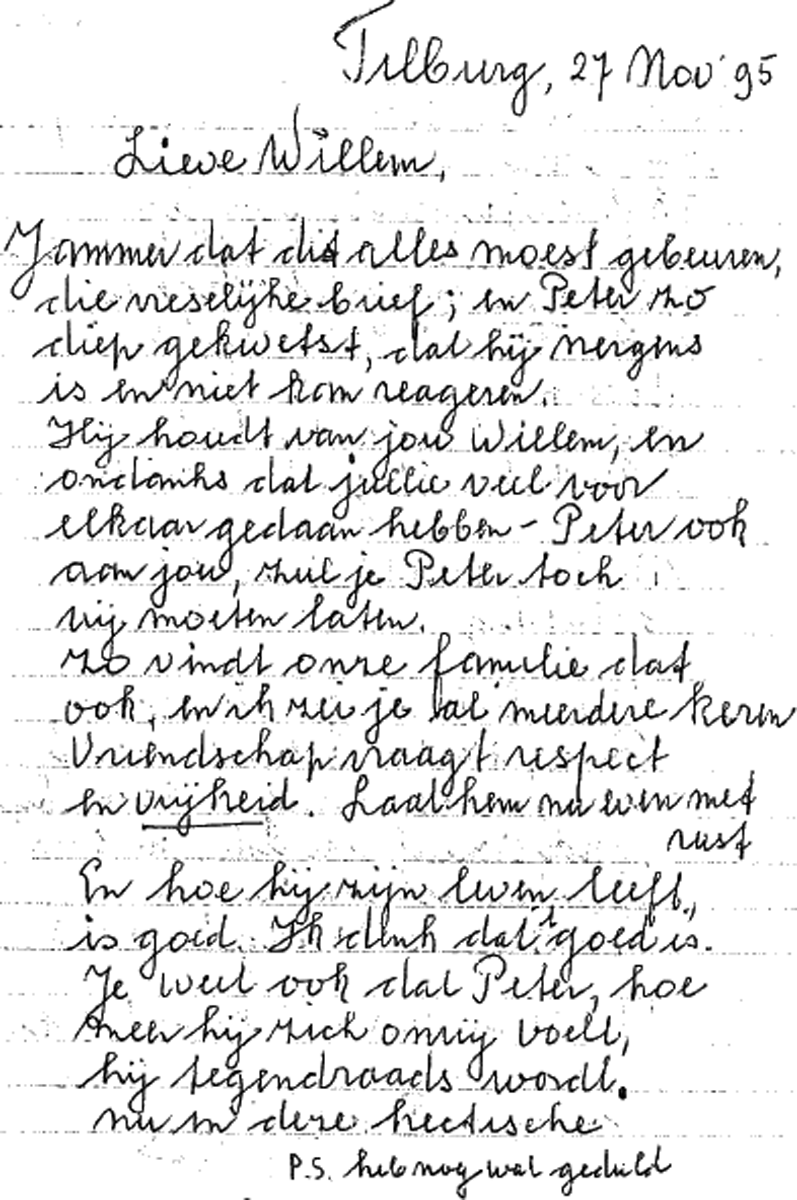 Tilburg, 27 Nov '95
Lieve Willem,
Jammer dat dit alles moest gebeuren,
die vreselijke brief; en Peter zo
diep gekwetst, dat hij nergens
is en niet kan reageren.
Hij houdt van jou Willem, en
ondanks dat jullie veel voor
elkaar gedaan hebben - Peter ook
aan jou, zul je Peter toch
vrij moeten laten.
Zo vindt onze familie dat
ook, en ik zei je al meerdere keren
Vriendschap vraagt respect
en vrijheid. Laat hem nu even met
rust
En hoe hij zijn leven leeft,
is goed. Ik denk dat 't goed is.
Je weet ook dat Peter, hoe
meer hij zich onvrij voelt,
hij tegendraads wordt.
nu in deze hectische
P.S. heb nog wat geduld